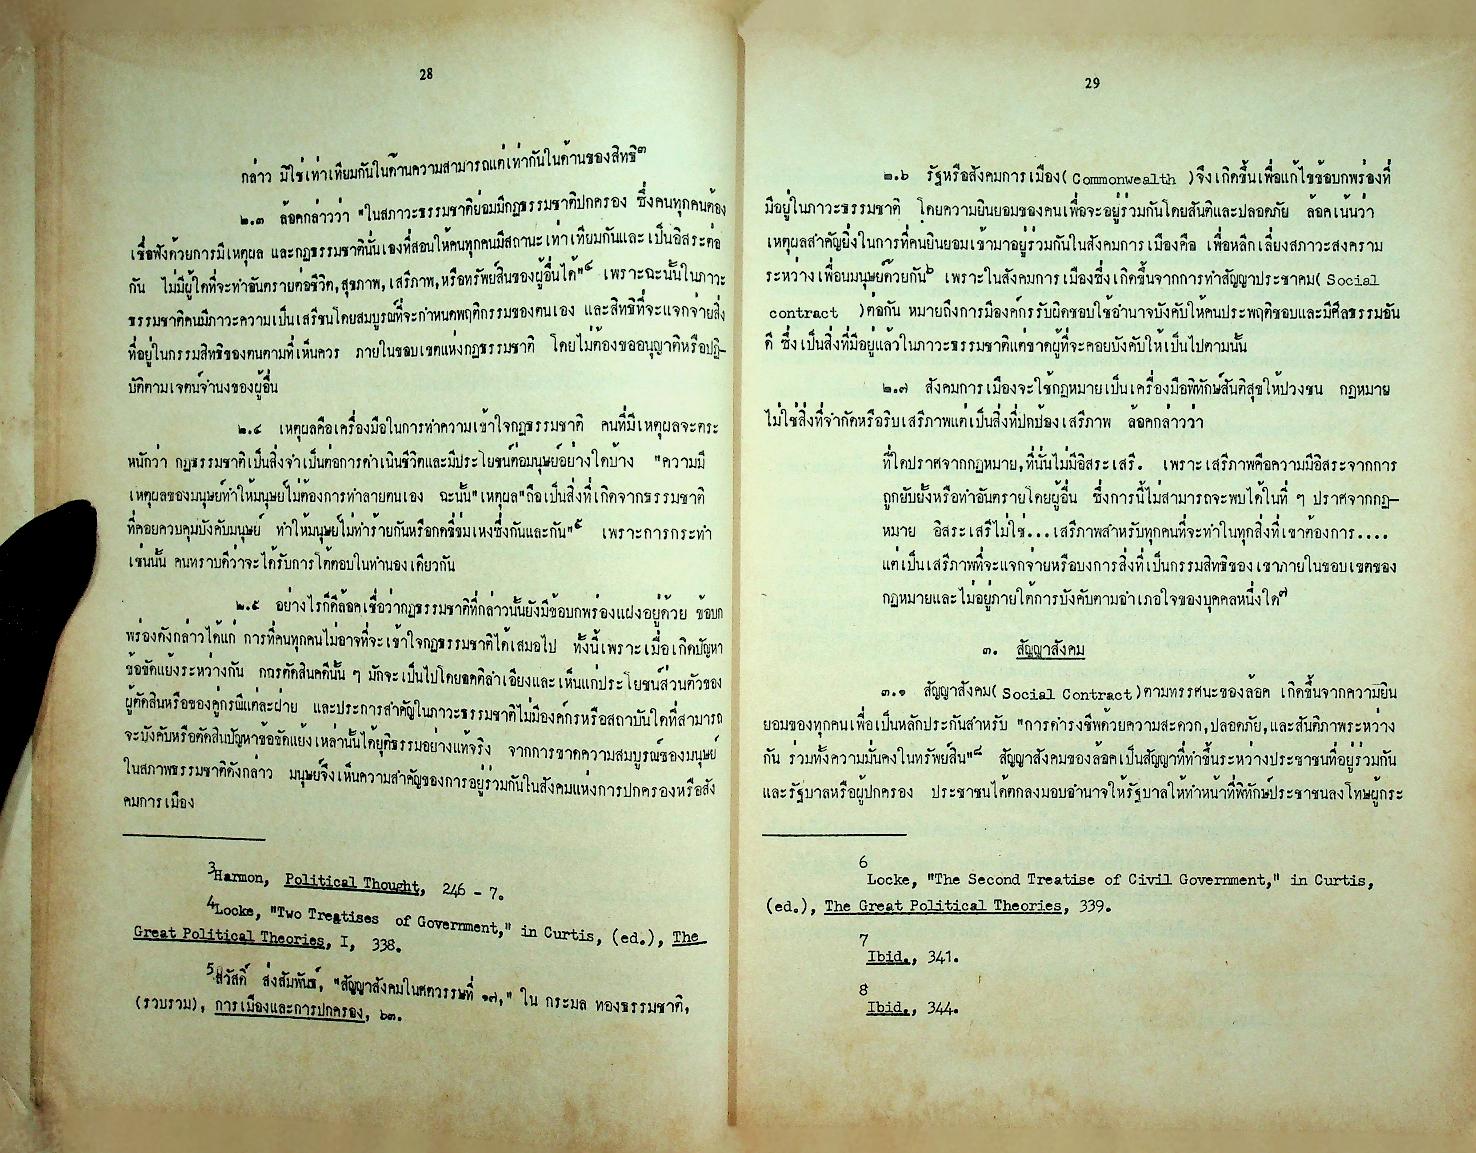 28
กล่าว มิใช่เท่าเทียมกันในด้านความสามารถแต่เท่ากันในด้านของสิทธิ๓
๒.๓ ล้อคกล่าวว่า "ในสภาวะธรรมชาติย่อมมีกฎธรรมชาติปกครอง ซึ่งคนทุกคนต้อง
เชื่อฟังด้วยการมีเหตุผล และกฎธรรมชาตินั่นเองที่สอนให้คนทุกคนมีสถานะเท่าเทียมกันและเป็นอิสระต่อ
กัน ไม่มีผู้ใดที่จะทำอันตรายต่อชีวิต,สุขภาพ,เสรีภาพ,หรือทรัพย์สินของผู้อื่นได้"๔ เพราะฉะนั้นในภาวะ
ธรรมชาติคนมีภาวะความเป็นเสรีชนโดยสมบูรณ์ที่จะกำหนดพฤติกรรมของตนเอง และสิทธิที่จะแจกจ่ายสิ่ง
ที่อยู่ในกรรมสิทธิของตนตามที่เห็นควร ภายในขอบเขตแห่งกฎธรรมชาติ โดยไม่ต้องขออนุญาติหรือปฏิ-
บัติตามเจตน์จำนงของผู้อื่น
๒.๔ เหตุผลคือเครื่องมือในการทำความเข้าใจกฎธรรมชาติ คนที่มีเหตุผลจะตระ
หนักว่า กฎธรรมชาติเป็นสิ่งจำเป็นต่อการดำเนินชีวิตและมีประโยชน์ต่อมนุษย์อย่างใดบ้าง "ความมี
เหตุผลของมนุษย์ทำให้มนุษย์ไม่ต้องการทำลายตนเอง ฉะนั้น"เหตุผล"ถือเป็นสิ่งที่เกิดจากธรรมชาติ
ที่คอยควบคุมบังคับมนุษย์ ทำให้มนุษย์ไม่ทำร้ายกันหรือกดขี่ข่มเหงซึ่งกันและกัน"๕ เพราะการกระทำ
เช่นนั้น คนทราบดีว่าจะได้รับการโต้ตอบในทำนองเดียวกัน
๒.๕ อย่างไรก็ดีล้อคเชื่อว่ากฎธรรมชาติที่กล่าวนั้นยังมีข้อบกพร่องแฝงอยู่ด้วย ข้อบก
พร่องดังกล่าวได้แก่ การที่คนทุกคนไม่อาจที่จะเข้าใจกฎธรรมชาติได้เสมอไป ทั้งนี้เพราะเมื่อเกิดปัญหา
ข้อขัดแย้งระหว่างกัน การตัดสินคดีนั้น ๆ มักจะเป็นไปโดยอคติลำเอียงและเห็นแก่ประโยชน์ส่วนตัวของ
ผู้ตัดสินหรือของคู่กรณีแต่ละฝ่าย และประการสำคัญในภาวะธรรมชาติไม่มีองค์กรหรือสถาบันใดที่สามารถ
จะบังคับหรือตัดสินปัญหาข้อขัดแย้งเหล่านั้นได้ยุติธรรมอย่างแท้จริง จากการขาดความสมบูรณ์ของมนุษย์
ในสภาพธรรมชาติดังกล่าว มนุษย์จึงเห็นความสำคัญของการอยู่ร่วมกันในสังคมแห่งการปกครองหรือสัง
คมการเมือง
3Harmon, Political Thought, 246 - 7.
4Locke, "Two Treatises of Government," in Curtis, (ed.), The
Great Political Theories, I, 338.
5สวัสดิ์ ส่งสัมพันธ์, "สัญญาสังคมในศตวรรษที่ ๑๗," ใน กระมล ทองธรรมชาติ,
(รวบรวม), การเมืองและการปกครอง, ๖๓.
29
๒.๖ รัฐหรือสังคมการเมือง( Commonwealth )จึงเกิดขึ้นเพื่อแก้ไขข้อบกพร่องที่
มีอยู่ในภาวะธรรมชาติ โดยความยินยอมของคนเพื่อจะอยู่ร่วมกันโดยสันติและปลอดภัย ล้อคเน้นว่า
เหตุผลสำคัญยิ่งในการที่คนยินยอมเข้ามาอยู่ร่วมกันในสังคมการเมืองคือ เพื่อหลีกเลี่ยงสภาวะสงคราม
ระหว่างเพื่อนมนุษย์ด้วยกัน๖ เพราะในสังคมการเมืองซึ่งเกิดขึ้นจากการทำสัญญาประชาคม( Social
contract )ต่อกัน หมายถึงการมีองค์กรรับผิดชอบใช้อำนาจบังคับให้คนประพฤติชอบและมีศีลธรรมอัน
ดี ซึ่งเป็นสิ่งที่มีอยู่แล้วในภาวะธรรมชาติแต่ขาดผู้ที่จะคอยบังคับให้เป็นไปตามนั้น
๒.๗ สังคมการเมืองจะใช้กฎหมายเป็นเครื่องมือพิทักษ์สันติสุขให้ปวงชน กฎหมาย
ไม่ใช่สิ่งที่จำกัดหรือริบเสรีภาพแต่เป็นสิ่งที่ปกป้องเสรีภาพ ล้อคกล่าวว่า
ที่ใดปราศจากกฎหมาย,ที่นั่นไม่มีอิสระเสรี. เพราะเสรีภาพคือความมีอิสระจากการ
ถูกยับยั้งหรือทำอันตรายโดยผู้อื่น ซึ่งการนี้ไม่สามารถจะพบได้ในที่ ๆ ปราศจากกฎ-
หมาย อิสระเสรีไม่ใช่...เสรีภาพสำหรับทุกคนที่จะทำในทุกสิ่งที่เขาต้องการ....
แต่เป็นเสรีภาพที่จะแจกจ่ายหรืองบการสิ่งที่เป็นกรรมสิทธิของเขาภายในขอบเขตของ
กฎหมายและไม่อยู่ภายใต้การบังคับตามอำเภอใจของบุคคลหนึ่งใด๗
๓. สัญญาสังคม
๓.๑ สัญญาสังคม( Social Contract )ตามทรรศนะของล้อค เกิดขึ้นจากความยิน
ยอมของทุกคนเพื่อเป็นหลักประกันสำหรับ "การดำรงชีพด้วยความสะดวก,ปลอดภัย,และสันติภาพระหว่าง
กัน ร่วมทั้งความมั่นคงในทรัพย์สิน"๘ สัญญาสังคมของล้อคเป็นสัญญาที่ทำขึ้นระหว่างประชาชนที่อยู่ร่วมกัน
และรัฐบาลหรือผู้ปกครอง ประชาชนได้ตกลงมอบอำนาจให้รัฐบาลให้ทำหน้าที่พิทักษ์ประชาชนลงโทษผู้กระ
6
Locke, "The Second Treatise of Civil Government," in Curtis,
(ed.), The Great Political Theories, 339.
7
Ibid., 341.
8
Ibid., 344.